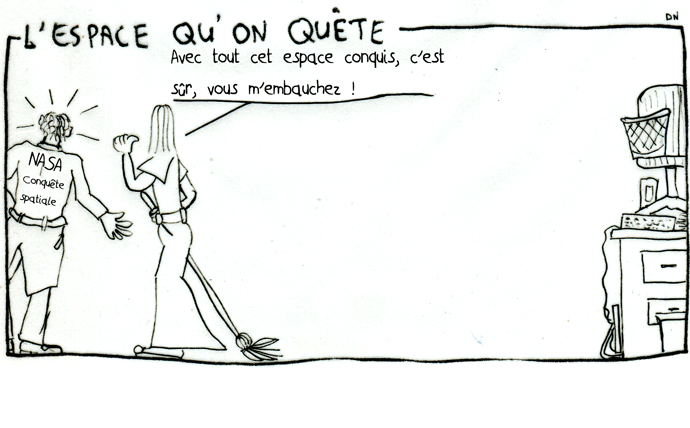 L'ESPACE QU'ON QUÊTE
DN
Avec tout cet espace conquis, c'est
sûr, vous m'embauchez !
NASA
Conquête
spatiale